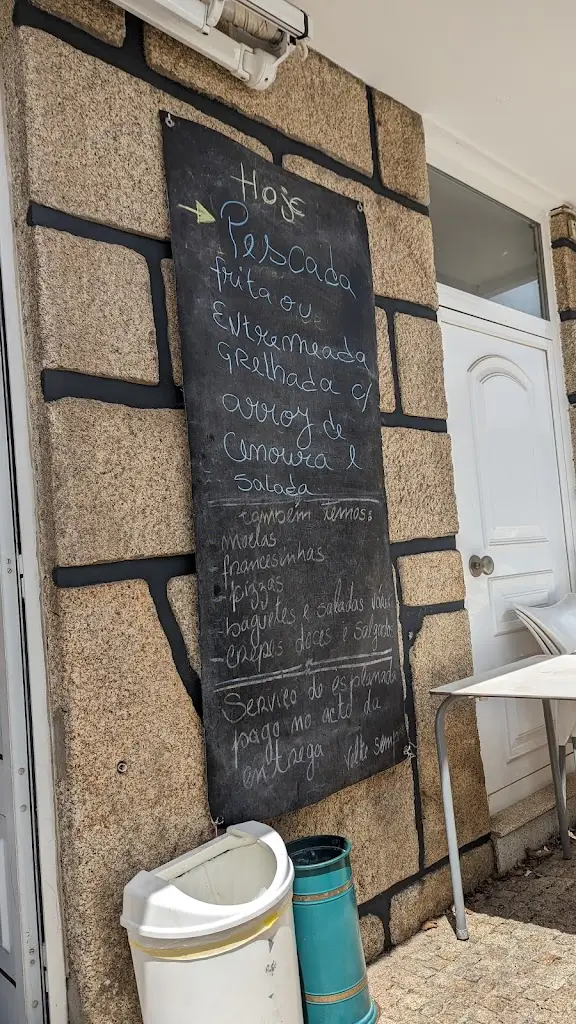 Hoje
Pescada
frita ou
Entremeada
Grelhada c/
arroz de
Cenoura e
Salada
também temos:
moelas
- francesinhas
- pizzas
- baguetes e saladas
- crepes doces e salgados
Serviço de esplanada
pago no acto da
entrega volte sempre